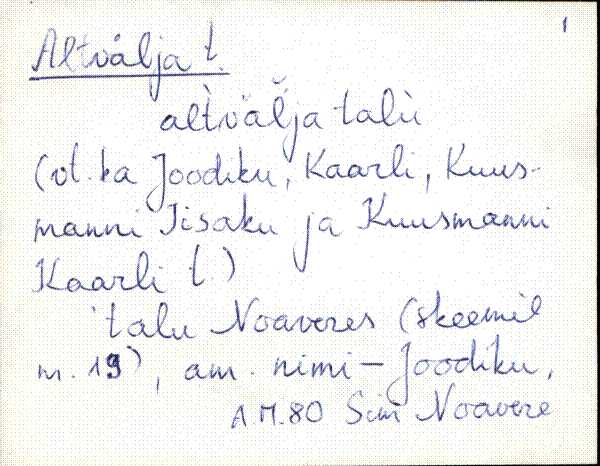 1
Altvälja t.
altˋvä̆lja talu
(vt. ka Joodiku, Kaarli, Kuus-
manni Iisaku ja Kuusmanni
Kaarli t.)
talu Noaveres (skeemil
nr. 19), am. nimi – Joodiku,
AM. 80 Sim Noavere